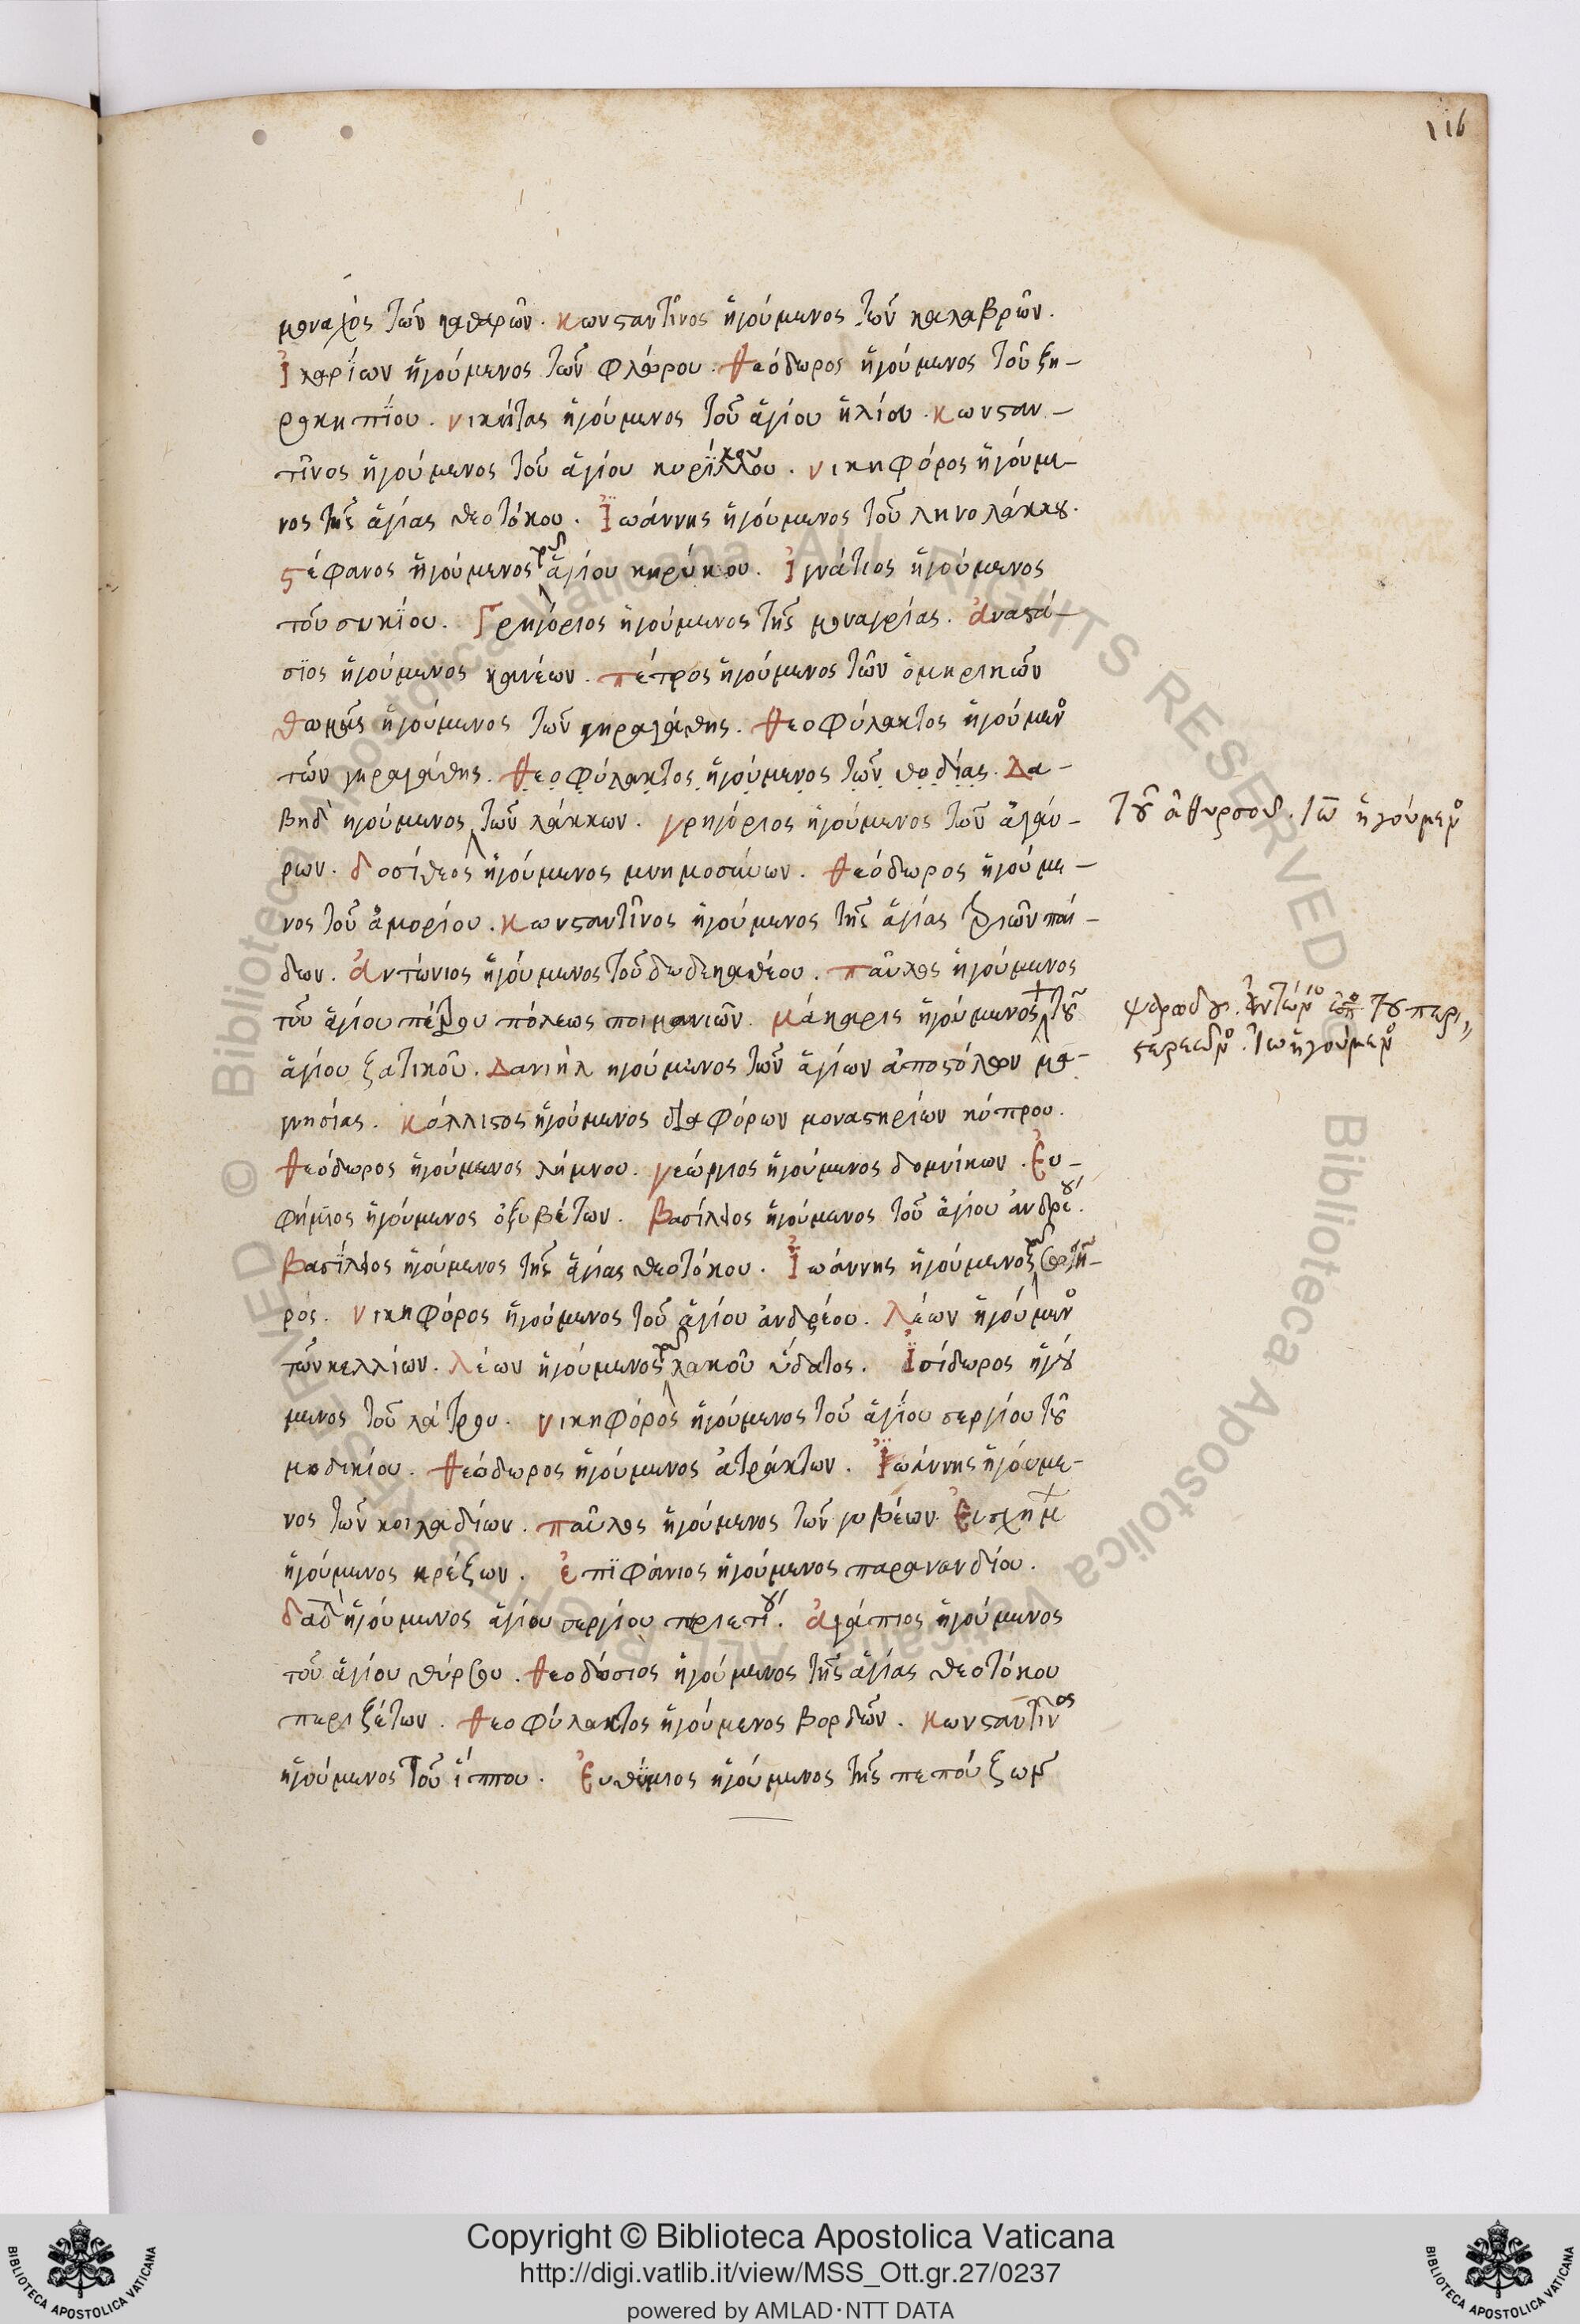 116
μοναχὸς τῶν καθαρῶν. κωνσταντῖνος ἡγούμενος τῶν καλαβρῶν.
Ἰλαρίων ἡγούμενος τῶν φλώρου. θεόδωρος ἡγούμενος τοῦ ξη-
ροκηπίου. νικήτας ἡγούμενος τοῦ ἁγίου ἡλίου. κωνσταν-
τῖνος ἡγούμενος τοῦ ἁγίου κυρΐλλου. νικηφόρος ἡγούμε-
νος τῆς ἁγίας θεοτόκου. Ἰωάννης ἡγούμενος τοῦ ληνολάκκου.
στέφανος ἡγούμενος τοῦ ἁγίου κηρύκου. Ἰγνάτιος ἡγούμενος
τοῦ συκΐου. Γρηγόριος ἡγούμενος τῆς μοναγρίας. ἀναστά-
σϊος ἡγούμενος καινέων. πέτρος ἡγούμενος τῶν ὁμηρικῶν
θωμᾶς ἡγούμενος τῶν γηραγάθης. θεοφύλακτος ἡγούμενο
τῶν γηραγάθης. θεοφύλακτος ἡγούμενος τῶν θοδίας. Δα-
βηδ ἡγούμενος τῶν λάκκων. γρηγόριος ἡγούμενος τῶν ἀγαύ-
ρων. δοσίθεος ἡγούμενος μνημοσύνων. θεόδωρος ἡγούμε-
νος τοῦ ἀμορίου. κωνσταντῖνος ἡγούμενος τῆς ἁγίας τριῶν παί-
δων. ἀντώνιος ἡγούμενος τοῦ δωδεκαθέου. παῦλος ἡγούμενος
τοῦ ἁγίου πέτρου πόλεως ποιμανιῶν. μάκαρις ἡγούμενος τοῦ
ἁγίου ξατικοῦ. Δανιὴλ ἡγούμενος τῶν ἁγίων ἀποστόλων μα-
γνησίας. κάλλιστος ἡγούμενος διαφόρων μοναστηρίων κύπρου.
θεόδωρος ἡγούμενος λήμνου. γεώργιος ἡγούμενος δομνίκων. Ευ-
φήμιος ἡγούμενος ὀξυβέτων. βασίλειος ἡγούμενος τοῦ ἁγίου ἀνδρέου.
βασίλειος ἡγούμενος τῆς ἁγίας θεοτόκου. Ἰωάννης ἡγούμενος τοῦ σωτῆ-
ρος. νικηφόρος ἡγούμενος τοῦ ἁγίου ἀνδρέου. λέων ἡγούμενο
τῶν κελλίων. λέων ἡγούμενος τοῦ κακοῦ ὕδατος. Ἰσίδωρος ἡγού
μενος τοῦ λάτρου. νικηφόρος ἡγούμενος τοῦ ἁγίου σεργίου τοῦ
μηδικίου. θεόδωρος ἡγούμενος ἀτράκτων. Ἰωάννης ἡγούμε-
νος τῶν κοιλαδίων. παῦλος ἡγούμενος τῶν γυβέων. Ευσχημ
ἡγούμενος κρέξων. ἐπϊφάνιος ἡγούμενος παρανανδίου.
δαδ ἡγούμενος ἁγίου σεργίου. ἀγάπιος ἡγούμενος
τοῦ ἁγίου θύρσου. θεοδόσιος ἡγούμενος τῆς ἁγίας θεοτόκου
περιξέτων. θεοφύλακτος ἡγούμενος βορδῶν. κωνσταντῖνος
ἡγούμενος τοῦ ἵππου. Ευθύμιος ἡγούμενος τῆς πεπούξων
τοῦ ἀθυρσου. Ἰω ἡγούμενο
του περι
στερεωνο. Ἰω ἡγούμενο
© Biblioteca Apostolica Vaticana ALL RIGHTS RESERVED
Copyright © Biblioteca Apostolica Vaticana
http://digi.vatlib.it/view/MSS_Ott.gr.27/0237
powered by AMLAD·NTT DATA
BIBLIOTECA APOSTOLICA VATICANA
BIBLIOTECA APOSTOLICA VATICANA